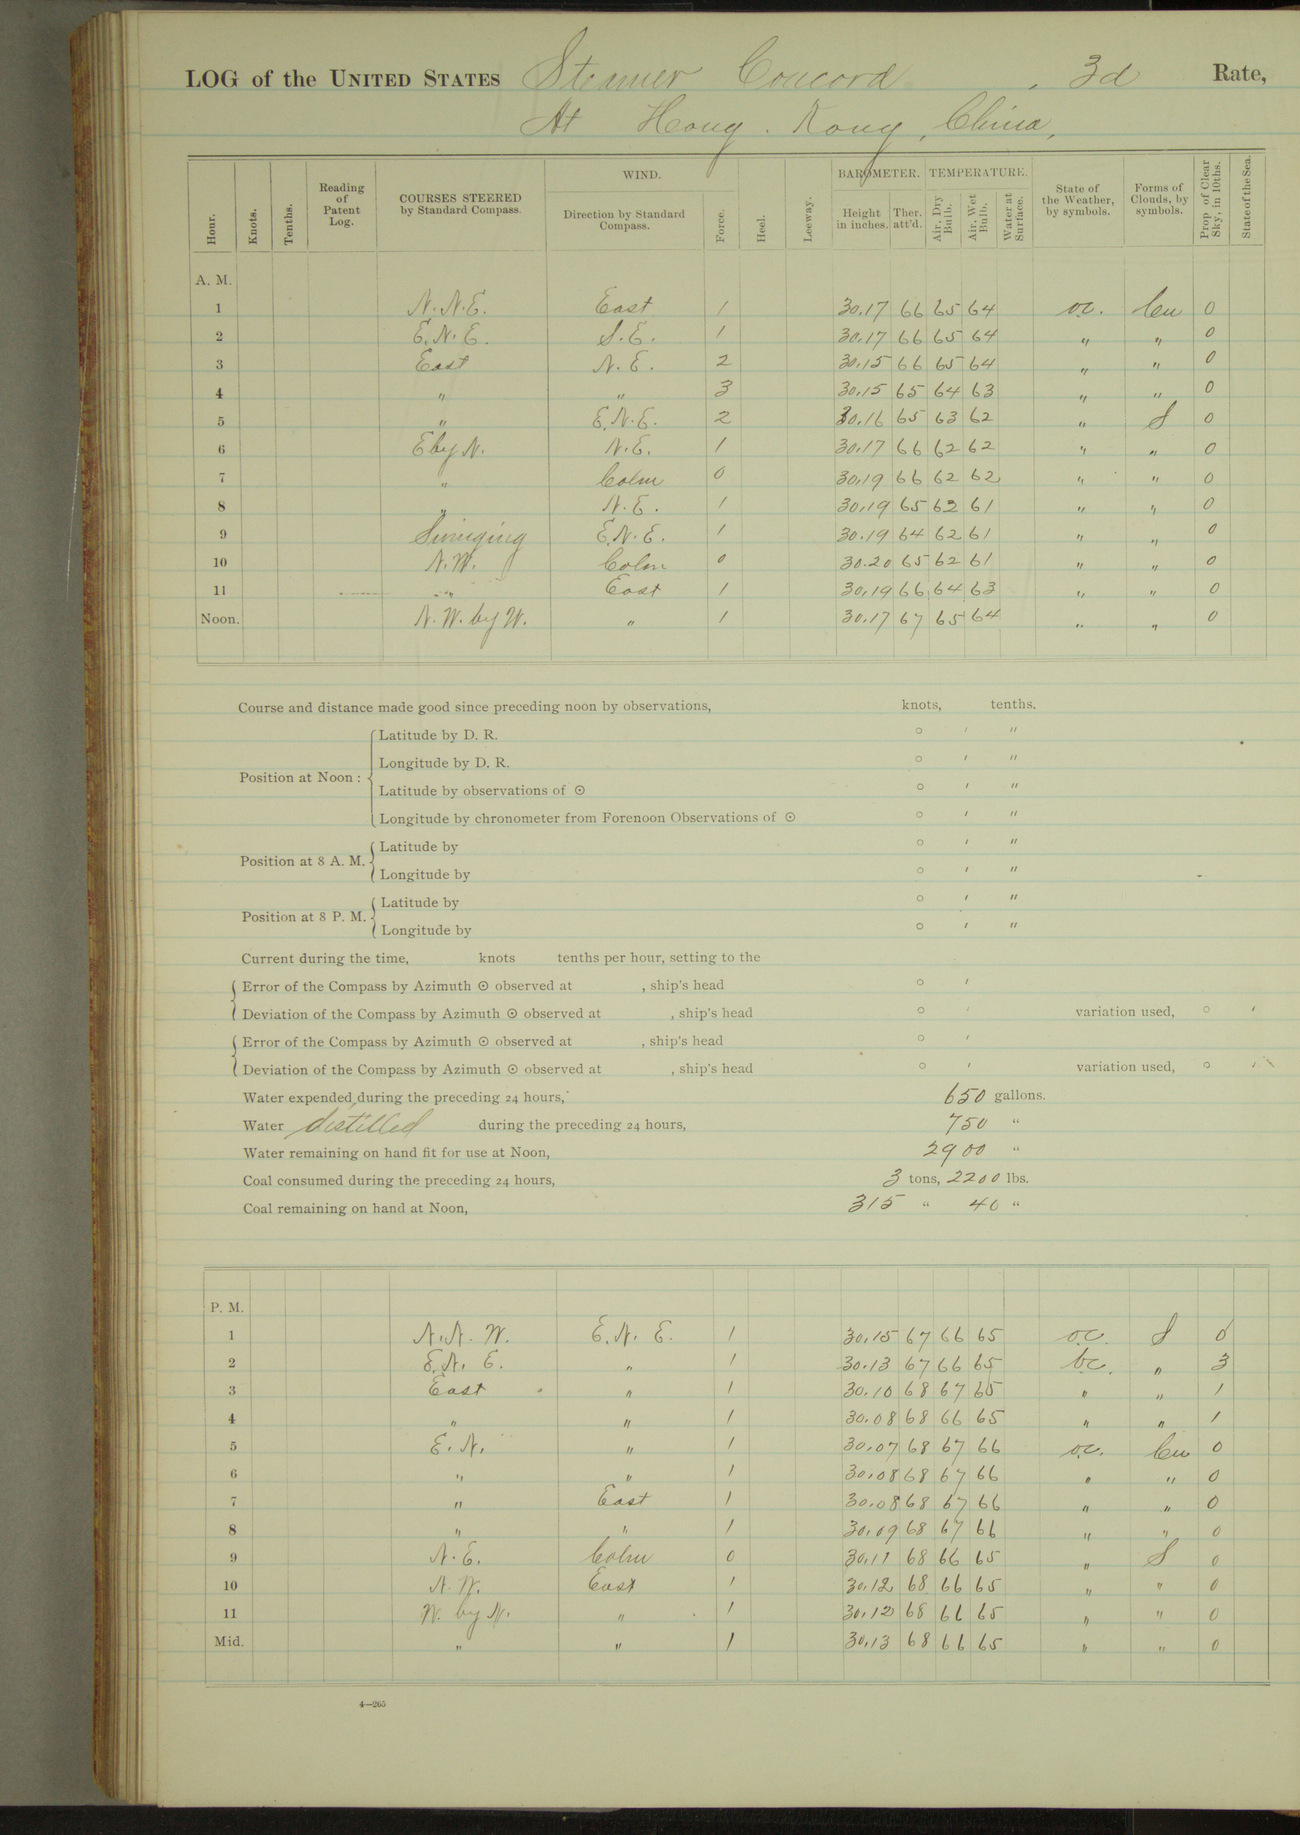 LOG of the UNITED STATES Steamer Concord, 3d Rate,
At Hong Kong, China,
Hour. Knots. Tenths. Reading of Patent Log. COURSES STEERED by Standard Compass. WIND. Direction by Standard Compass. Force. Heel. Leeway. BAROMETER. Height in inches. Ther. att'd. TEMPERATURE. Air, Dry Bulb. Air, Wet Bulb. Water at Surface. State of the Weather, by symbols. Forms of Clouds, by symbols. Prop. of Clear Sky, in 10ths. State of the Sea.
A. M.
1 N.N.E. East 1 30.17 66 65 64 o.c. Cu 0
2 E.N.E. S.E. 1 30.17 66 65 64 " " 0
3 East N.E. 2 30.15 66 65 64 " " 0
4 " " 3 30.15 65 64 63 " " 0
5 " E.N.E. 2 30.16 65 63 62 " S 0
6 E by N. N.E. 1 30.17 66 62 62 " " 0
7 " Calm 0 30.19 66 62 62 " " 0
8 " N.E. 1 30.19 65 62 61 " " 0
9 Swinging E.N.E. 1 30.19 64 62 61 " " 0
10 N.W. Calm 0 30.20 65 62 61 " " 0
11 " East 1 30.19 66 64 63 " " 0
Noon. N.W. by W. " 1 30.17 67 65 64 " " 0
Course and distance made good since preceding noon by observations, knots, tenths.
Position at Noon: Latitude by D. R. ° ′ ″
Longitude by D. R. ° ′ ″
Latitude by observations of ☉ ° ′ ″
Longitude by chronometer from Forenoon Observations of ☉ ° ′ ″
Position at 8 A. M. Latitude by ° ′ ″
Longitude by ° ′ ″
Position at 8 P. M. Latitude by ° ′ ″
Longitude by ° ′ ″
Current during the time, knots tenths per hour, setting to the
Error of the Compass by Azimuth ☉ observed at , ship's head ° ′
Deviation of the Compass by Azimuth ☉ observed at , ship's head ° ′ variation used, ° ′
Error of the Compass by Azimuth ☉ observed at , ship's head ° ′
Deviation of the Compass by Azimuth ☉ observed at , ship's head ° ′ variation used, ° ′
Water expended during the preceding 24 hours, 650 gallons.
Water distilled during the preceding 24 hours, 750 "
Water remaining on hand fit for use at Noon, 2900 "
Coal consumed during the preceding 24 hours, 3 tons, 2200 lbs.
Coal remaining on hand at Noon, 315 " 40 "
P. M.
1 N.N.W. E.N.E. 1 30.15 67 66 65 o.c. S 0
2 E.N.E. " 1 30.13 67 66 65 bc. " 3
3 East " 1 30.10 68 67 65 " " 1
4 " " 1 30.08 68 66 65 " " 1
5 E.N. " 1 30.07 68 67 66 o.c. Cu 0
6 " " 1 30.08 68 67 66 " " 0
7 " East 1 30.08 68 67 66 " " 0
8 " " 1 30.09 68 67 66 " " 0
9 N.E. Calm 0 30.11 68 66 65 " S 0
10 N.W. East 1 30.12 68 66 65 " " 0
11 W. by N. " 1 30.12 68 66 65 " " 0
Mid. " " 1 30.13 68 66 65 " " 0
4—265